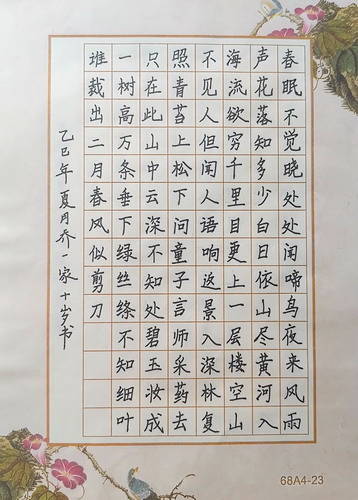 春眠不觉晓处处闻啼鸟夜来风雨
声花落知多少白日依山尽黄河入
海流欲穷千里目更上一层楼空山
不见人但闻人语响返景入深林复
照青苔上松下问童子言师采药去
只在此山中云深不知处碧玉妆成
一树高万条垂下绿丝绦不知细叶
谁裁出二月春风似剪刀
乙巳年夏月乔一家十岁书
68A4-23